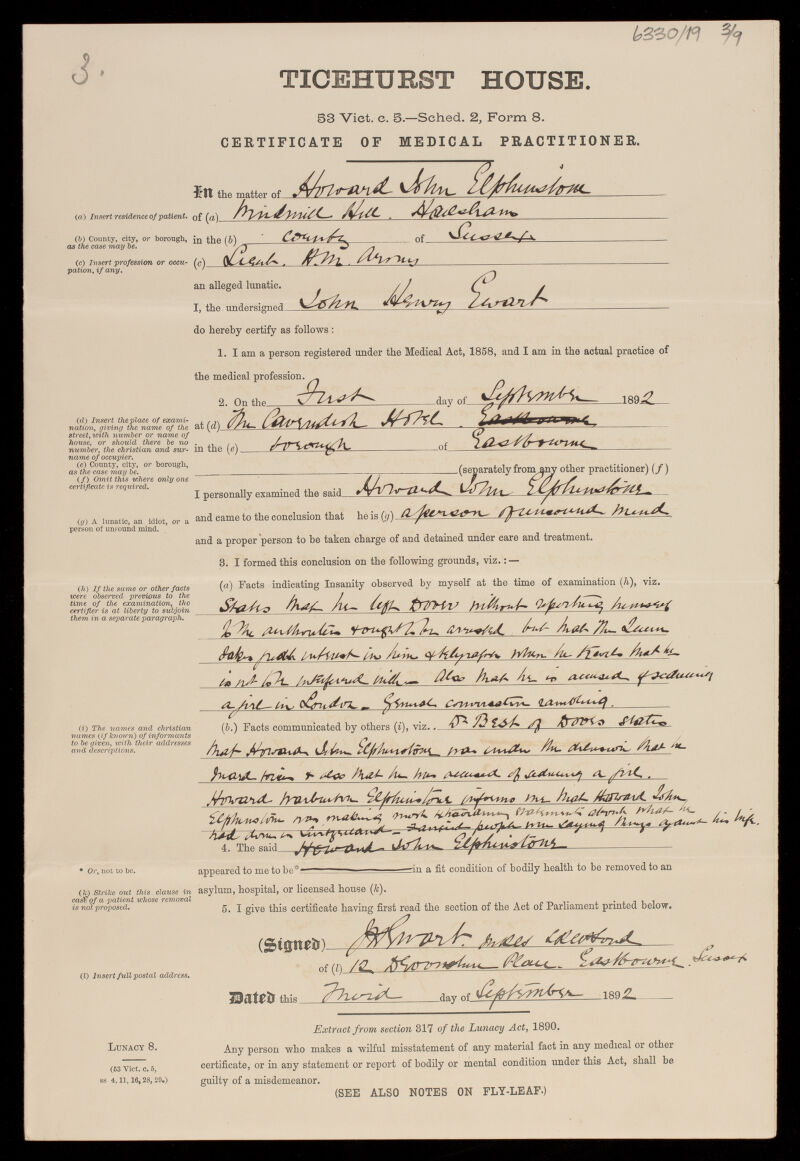 6330/19 3/9
3.
TICEHURST HOUSE.
53 Vict. c. 5.—Sched. 2, Form 8.
CERTIFICATE OF MEDICAL PRACTITIONER.
In the matter of Howard John Elphinstone
(a) Insert residence of patient. of (a) Windmill Hill. Hailsham
(b) County, city, or borough, as the case may be. in the (b) County of Sussex
(c) Insert profession or occupation, if any. (c) Lieut. H.M. Army
an alleged lunatic.
I, the undersigned John Henry Ewart
do hereby certify as follows:
1. I am a person registered under the Medical Act, 1858, and I am in the actual practice of
the medical profession.
2. On the First day of September 1892
(d) Insert the place of examination, giving the name of the street, with number or name of house, or should there be no number, the christian and surname of occupier. at (d) The Cavendish Hotel. Eastbourne
(e) County, city, or borough, as the case may be. in the (e) borough of Eastbourne
(f) Omit this where only one certificate is required. (separately from any other practitioner) (f)
I personally examined the said Howard John Elphinstone
(g) A lunatic, an idiot, or a person of unsound mind. and came to the conclusion that he is (g) a person of unsound mind
and a proper person to be taken charge of and detained under care and treatment.
3. I formed this conclusion on the following grounds, viz.:—
(h) If the same or other facts were observed previous to the time of the examination, the certifier is at liberty to subjoin them in a separate paragraph. (a) Facts indicating Insanity observed by myself at the time of examination (h), viz.
States that he left Dover without reporting himself
to the authorities & ought to be arrested but that the Queen
takes great interest in him & telegraphs when he travels that he
is not to be interfered with – Also that he is accused of seducing
a girl in London – General conversation rambling.
(i) The names and christian names (if known) of informants to be given, with their addresses and descriptions. (b.) Facts communicated by others (i), viz.. Dr Best of Dover states
that Howard John Elphinstone was under the delusion that he
heard voices & also that he was accused of seducing a girl.
Howard Warburton Elphinstone informs me that Howard John
Elphinstone was making most statements about what he
had done in Switzerland – fancied people were saying things against his wife.
4. The said Howard John Elphinstone
* Or, not to be. appeared to me to be* in a fit condition of bodily health to be removed to an
(k) Strike out this clause in case of a patient whose removal is not proposed. asylum, hospital, or licensed house (k).
5. I give this certificate having first read the section of the Act of Parliament printed below.
(Signed) JHEwart.
(l) Insert full postal address. of (l) 12 Devonshire Place. Eastbourne. Sussex
Dated this Third day of September 1892
Extract from section 317 of the Lunacy Act, 1890.
LUNACY 8.
(53 Vict. c. 5,
ss 4, 11, 16, 28, 29.)
Any person who makes a wilful misstatement of any material fact in any medical or other
certificate, or in any statement or report of bodily or mental condition under this Act, shall be
guilty of a misdemeanor.
(SEE ALSO NOTES ON FLY-LEAF.)